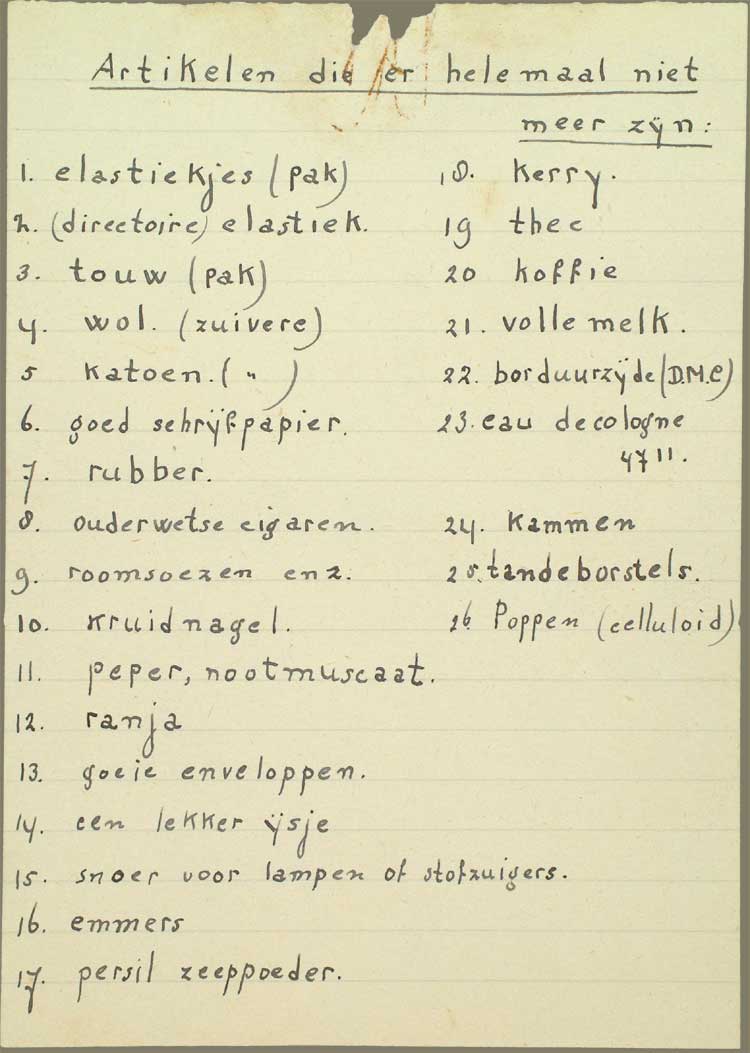 Artikelen die er helemaal niet
meer zijn:
1. elastiekjes (pak)
2. (directoire) elastiek.
3. touw (pak)
4. wol. (zuivere)
5 katoen. ( " )
6. goed schrijfpapier.
7. rubber.
8. ouderwetse cigaren.
9. roomsoezen enz.
10. kruidnagel.
11. peper, nootmuscaat.
12. ranja
13. goeie enveloppen.
14. een lekker ijsje
15. snoer voor lampen of stofzuigers.
16. emmers
17. persil zeeppoeder.
18. kerry.
19 thee
20 koffie
21. volle melk.
22. borduurzijde (D.M.C)
23. eau de cologne
4711.
24. Kammen
25. tandeborstels.
26. Poppen (celluloid)